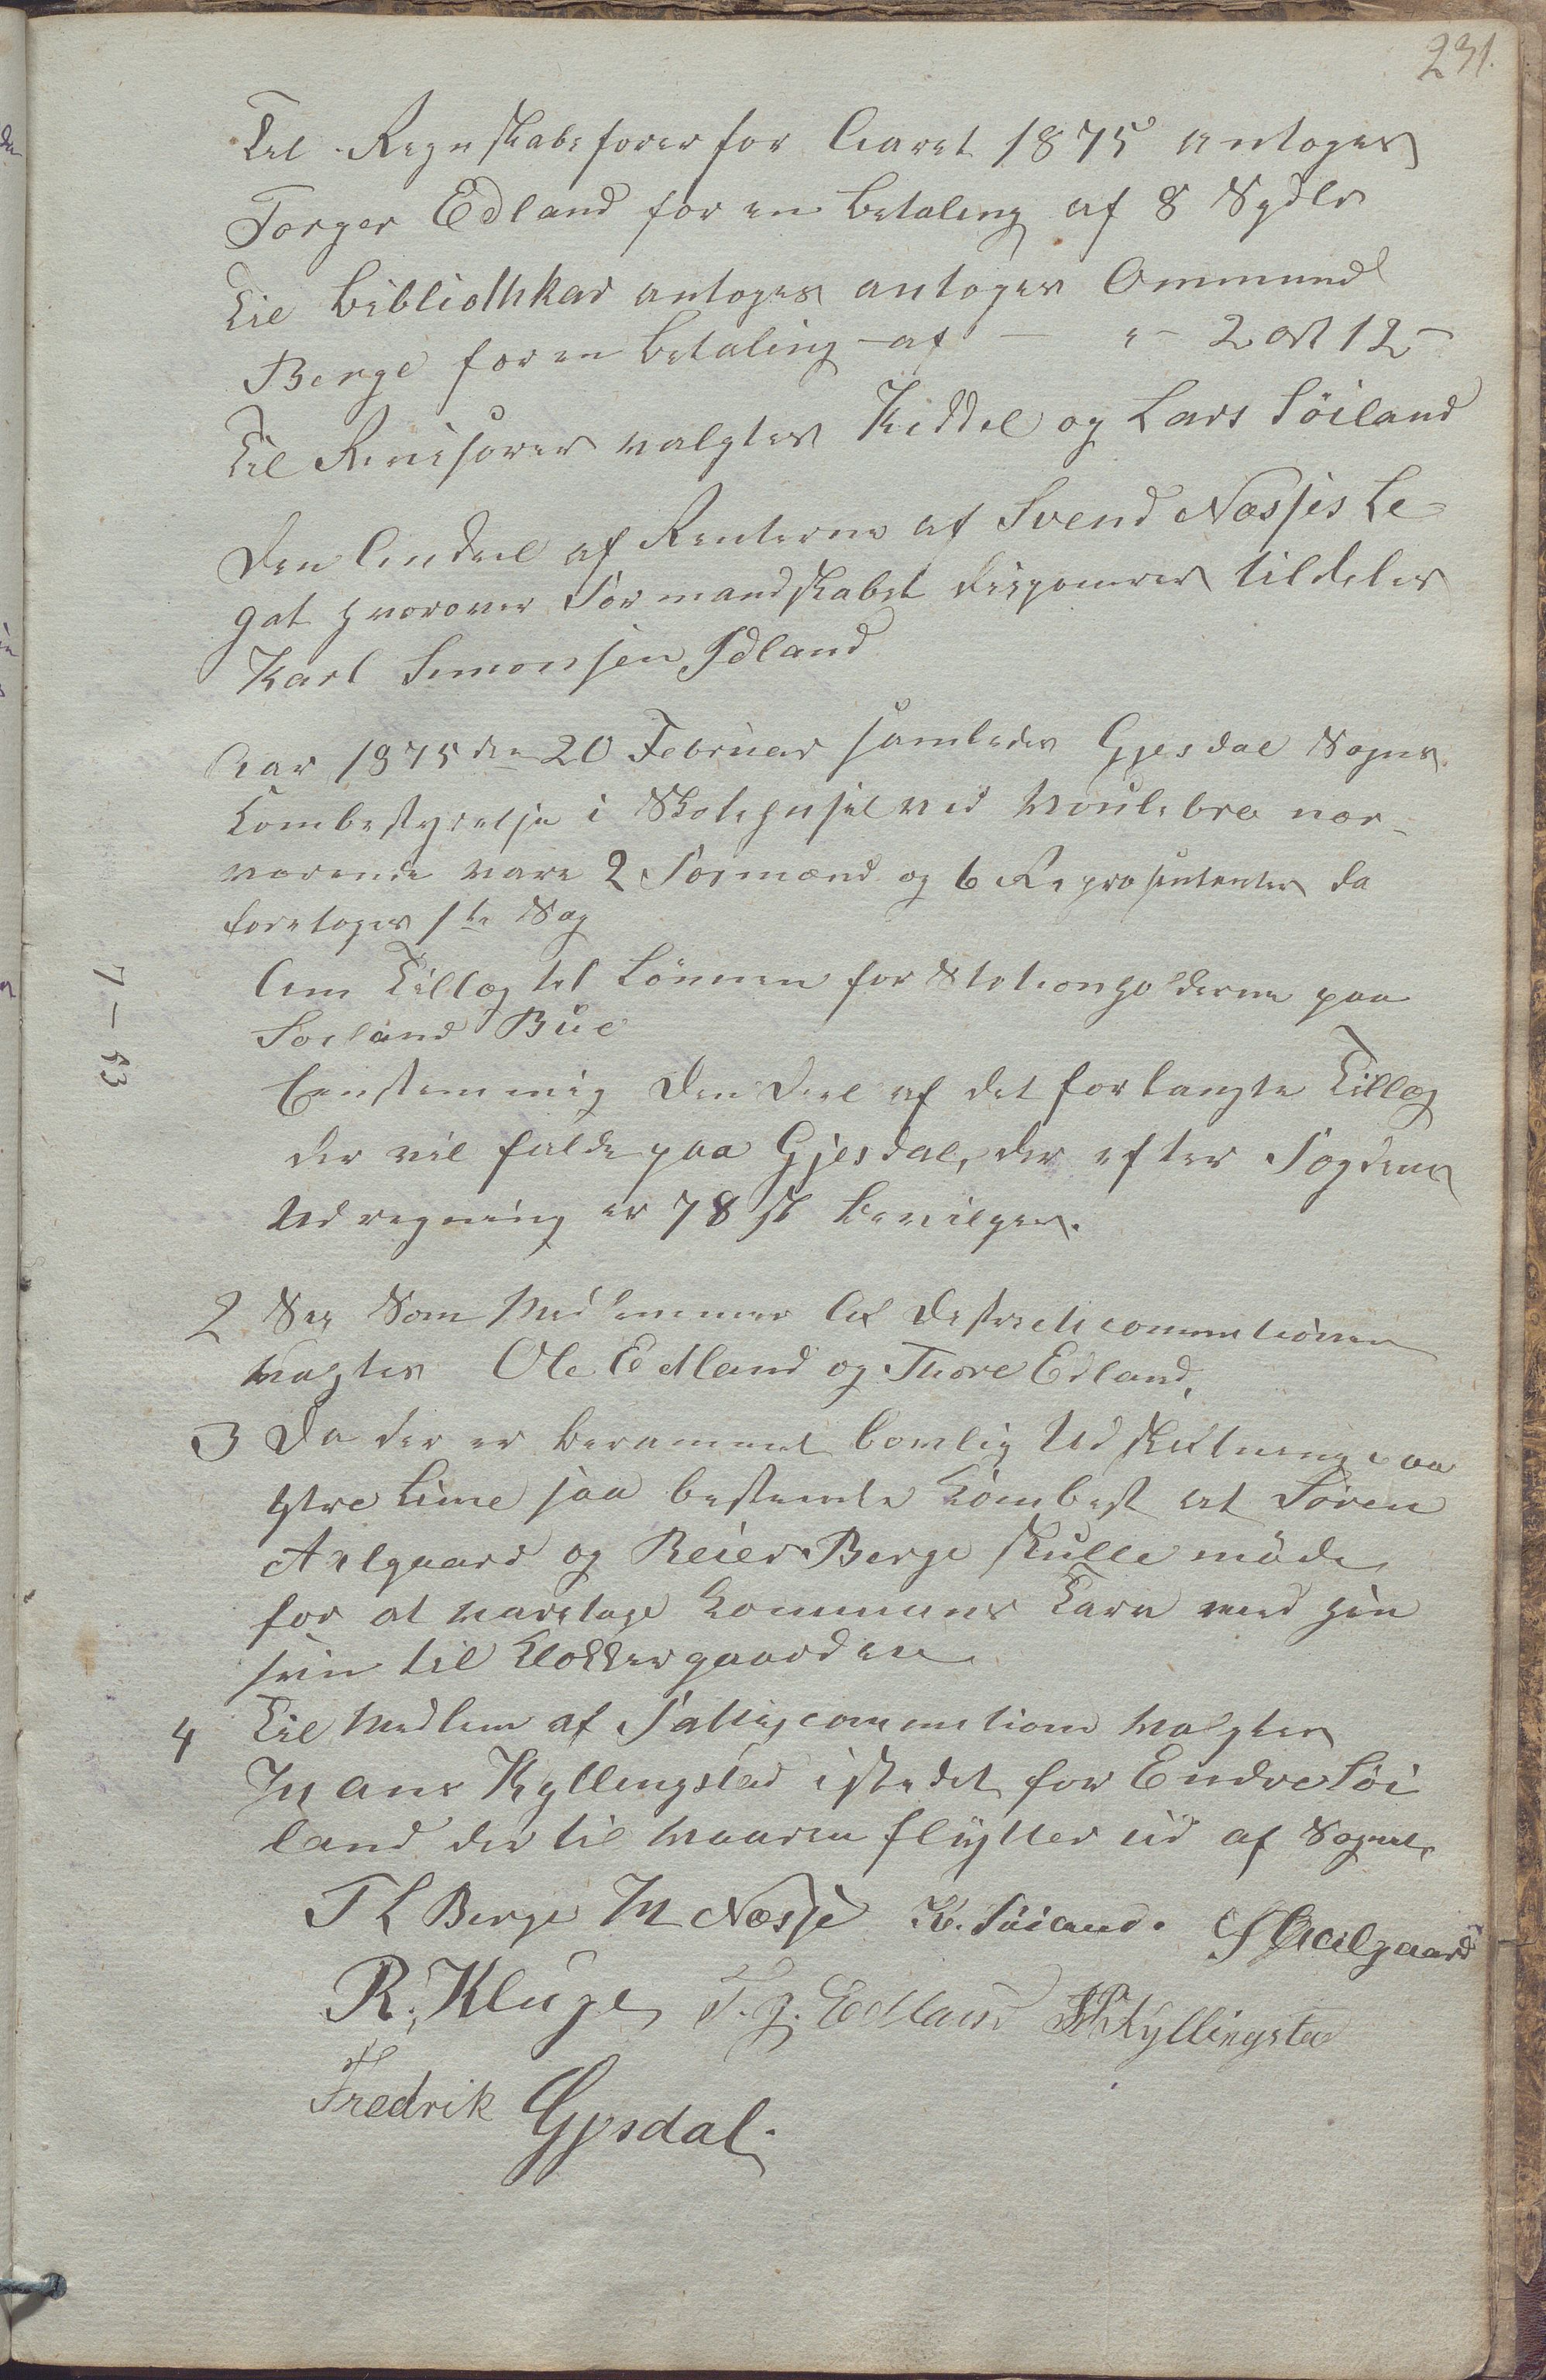 231.
Til Regnskabsforer for Aaret 1875 antoges
Torger Edland for en Betaling af 8 Spdlr
Til Bibliothkar antoges antoges Ommund
Berge for en Betaling af - " - 2 ort 12 -
Til Revisorer valgtes Kiddel og Lars Söiland
Den Andeel af Renterne af Svend Næsses Le-
gat hvorover Formandskabet disponerer tildeles
Karl Simonsen Idland
Aar 1875 den 20 Februar samledes Gjesdal Sogns
Kombestyrelse i Skolehuset ved Moulebro nær-
værende vare 2 Formænd og 6 Repræsententer da
foretoges 1te Sag
Om Tillæg til Lönnen for Stationholderne paa
Soeland Bue
Eenstemmig Den Deel af det forlangte Tillæg
der vil falde paa Gjesdal, der efter Fogdens
Udregning er 78 s Bevilges.
2 Sag Som Medlemmer Af Destrictscommetionen
Valgtes Ole Edland og Thore Edland,
3 Da der er berammet Lovlig Udskiftning paa
Ytre Lime saa bestemte Kombest at Sören
Aalgaard og Reier Berge skulle möde
for at varetage Kommuns Tarv med hen
sein til Klokkergaarden
4 Til Medlem af Fattigcommetionen Valgtes
Mans Kyllingstad istedet for Endre Söi
land der til Vaaren flÿtter ud af Sognet,
T L Berge M Næsse K. Söiland. S Aalgaard
R. Kluge T. J. Edland Kyllingstad
Fredrik Gjesdal.
7 - 83